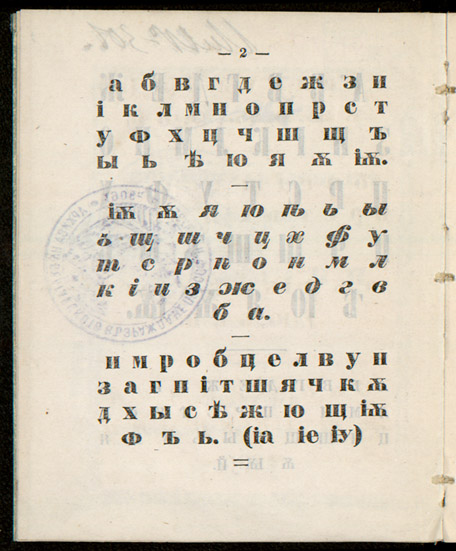 — 2 —
а б в г д е ж з и
і к л м н о п р с т
у ф х ц ч ш щ ъ
ы ь ѣ ю я ѫ ѭ.
ѭ ѫ я ю ѣ ь ы
ъ щ ш ч ц х ф у
т с р п о н м л
к і и з ж е д г в
б а.
и м р о б ц е л в у н
з а г п і т ш я ч к ѫ
д х ы с ѣ ж ю щ ѭ
ф ъ ь. (іа іе іу)